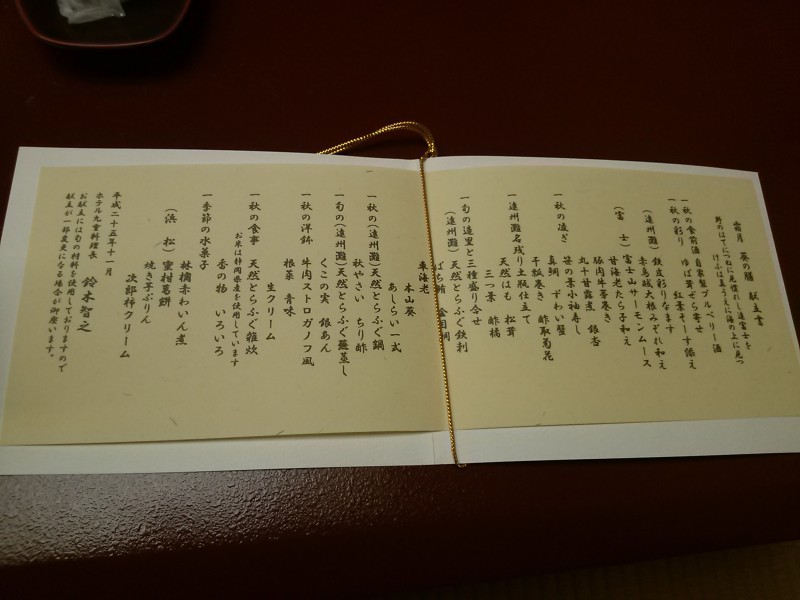 霜月 葵の膳 献立書
野のはてにつねに見慣れし遠富士を
けふは真うえに海の上に見つ
一秋の食前酒 自家製ブルーベリー酒
一秋の彩り ゆば茸ぜら寄せ
紅葉そーす添え
(遠州灘) 鉄皮彩りなます
赤烏賊大根みぞれ和え
(富 士) 富士山サーモンムース
甘海老たら子和え
豚肉牛蒡巻き 銀杏
丸十甘露煮
一秋の凌ぎ 笹の葉小袖寿し
真鯛 ずわい蟹
干瓢巻き 酢取菊花
一遠州灘名残り土瓶仕立て
天然はも 松茸
三つ葉 酢橘
一旬の造里と三種盛り合せ
(遠州灘) 天然とらふぐ鉄利
ばち鮪 金目鯛
車海老
本山葵
あしらい一式
一秋の(遠州灘)天然とらふぐ鍋
秋やさい ちり酢
一旬の(遠州灘)天然とらふぐ蕪蒸し
くこの実 銀あん
一秋の洋鉢 牛肉ストロガノフ風
根菜 青味
生クリーム
一秋の食事 天然とらふぐ雑炊
お米は静岡県産を使用しています
香の物 いろいろ
一季節の水菓子
林檎赤わいん煮
(浜 松) 蜜村葛餅
焼き芋ぷりん
次郎柿クリーム
平成二十五年十一月
ホテル九重料理長 鈴木智之
お献立には旬の材料を使用しておりますので
献立が一部変更になる場合が御座います。